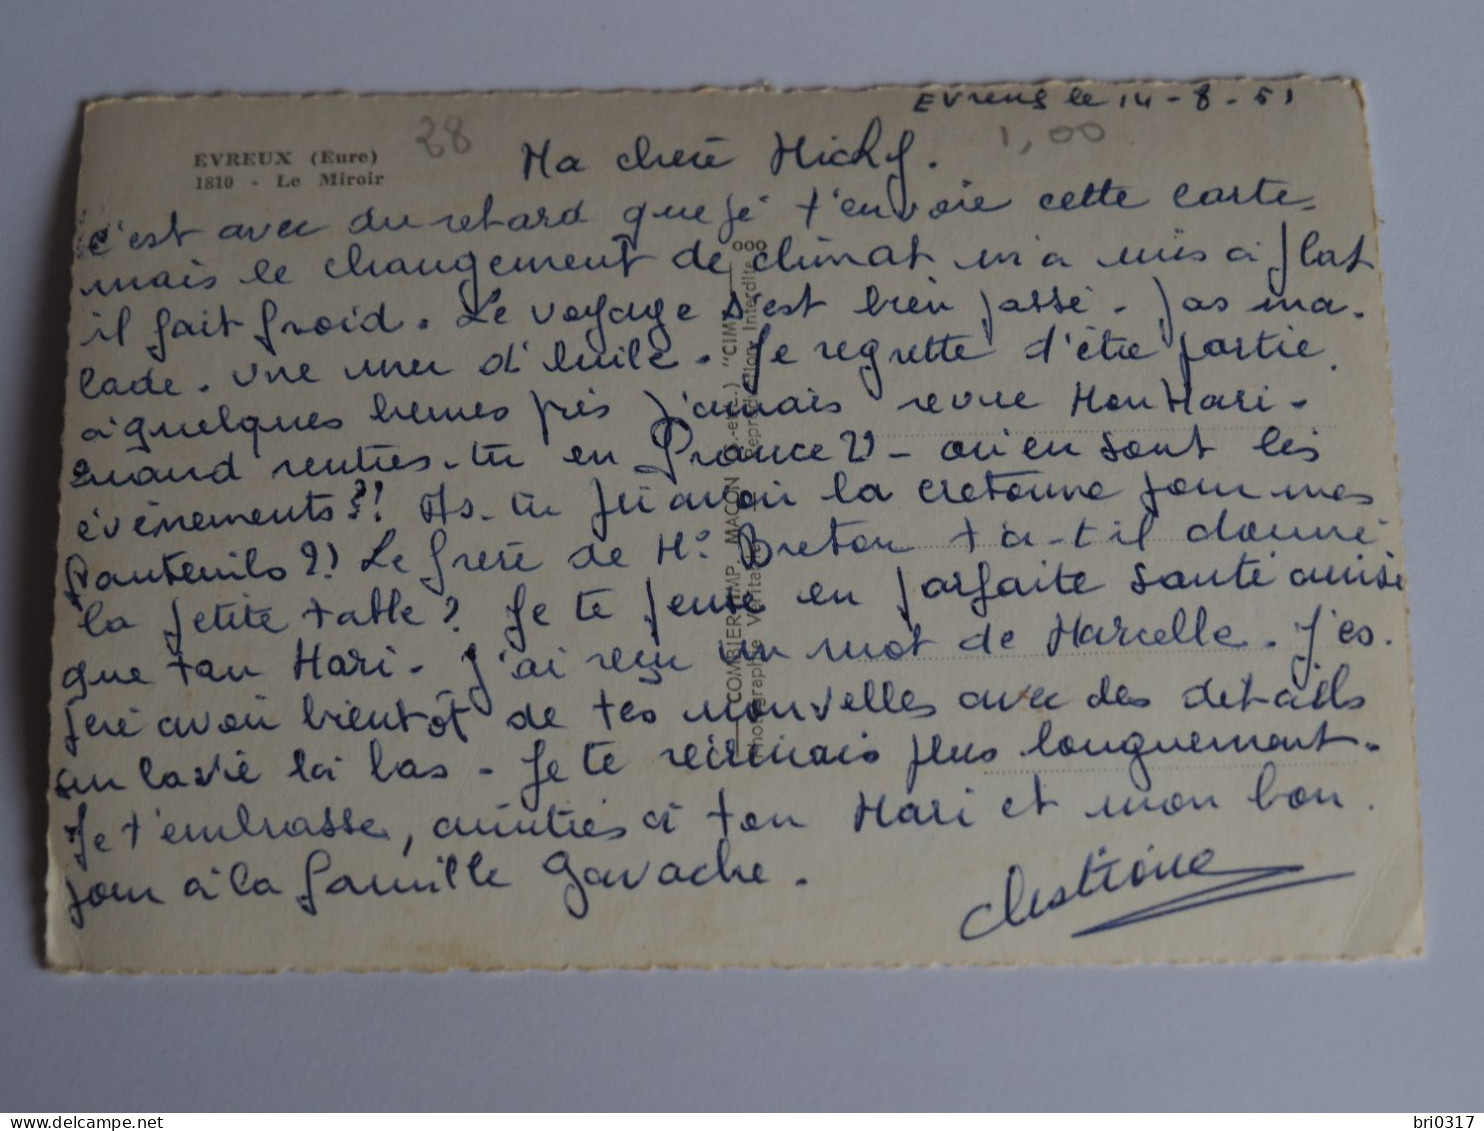 Evreux le 14-8-51
EVREUX (Eure)
1810 - Le Miroir
28
1,00
Ma chère Michy.
c'est avec du retard que je t'envoie cette carte-
mais le changement de climat m'a mis à plat
il fait froid. Le voyage s'est bien passé - pas ma-
lade. Une mer d'huile. Je regrette d'être partie.
à quelques heures près j'amais revue Mon Mari-
Quand rentres-tu en France?! - où en sont les
évènements?! As-tu pu avoir la cretonne pour mes
fauteuils?! Le frère de Mr Breton t'a-t-il donné
la petite table? Je te pense en parfaite santé ainsi
que ton Mari. J'ai reçu un mot de Marcelle. J'es-
père avoir bientôt de tes nouvelles avec des détails
sur la vie là bas - Je te réécrirais plus longuement-
Je t'embrasse, amitiés à ton Mari et mon bon-
jour à la famille Gavache.
Christiane
COMBIER IMP. MACON (S.-et-L.) "CIM"
Photographie Véritable Reproduction Interdite
bri0317